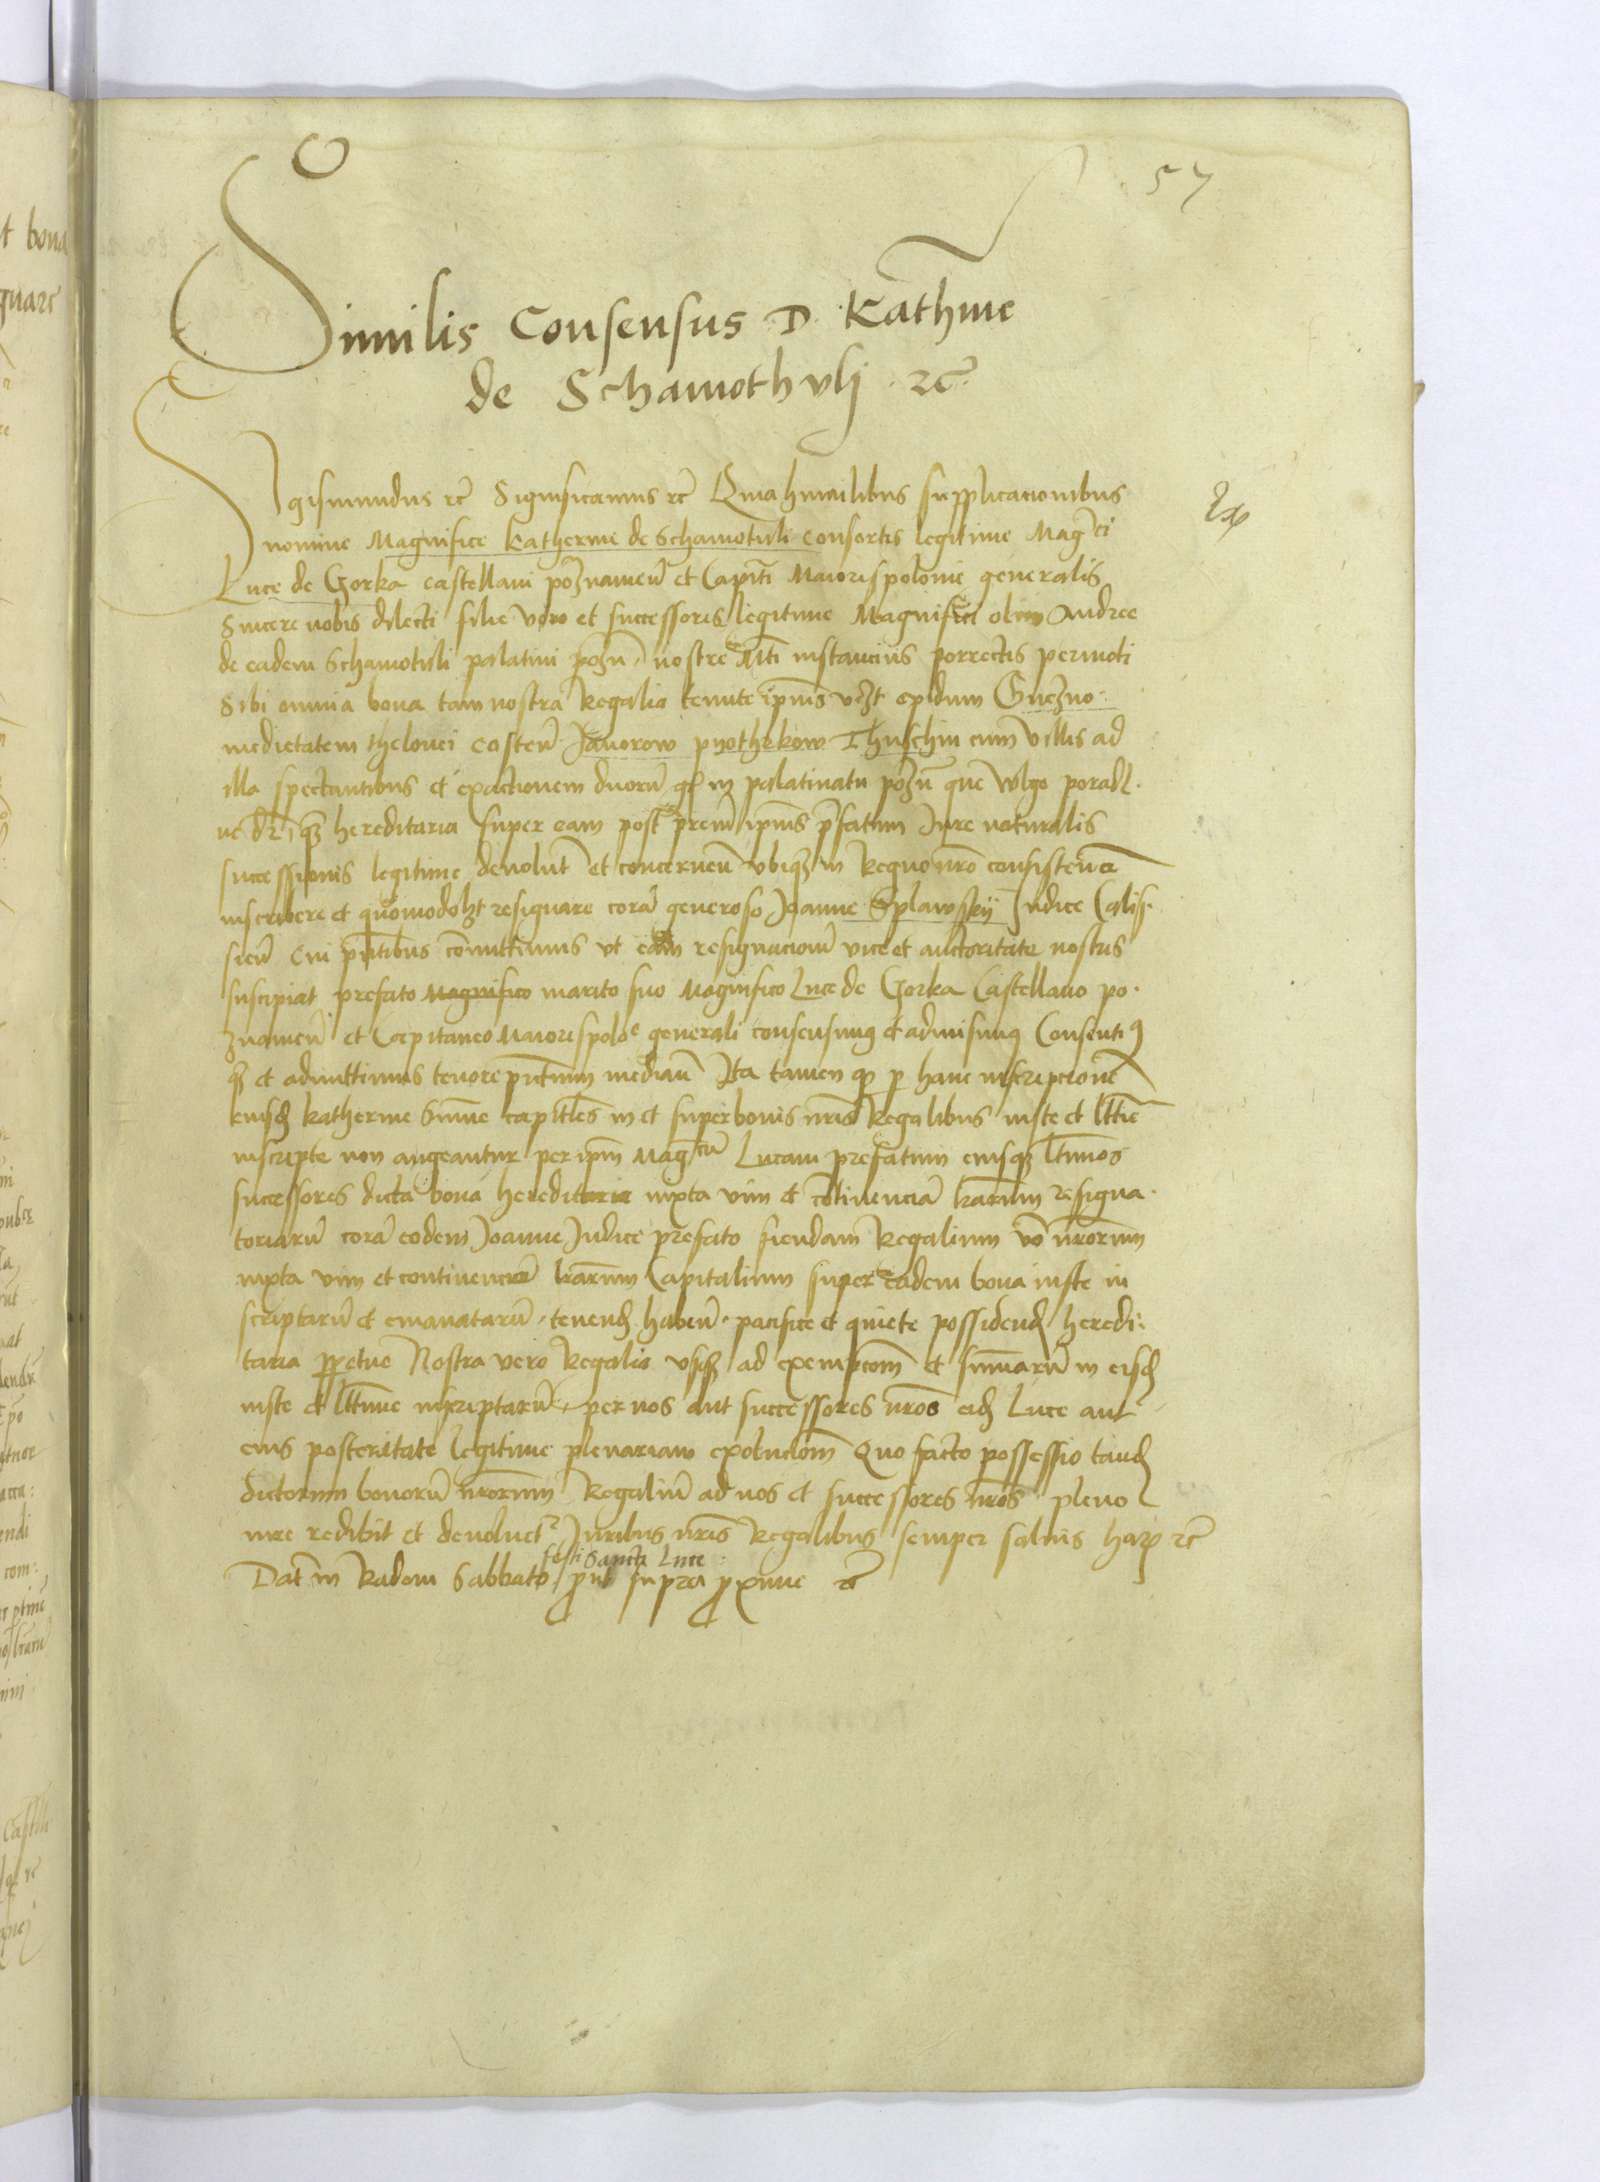 57
Similis Consensus D. Kathrine
de Schamothulj. etc.
Sigismundus etc Significamus etc Quia humilibus supplicacionibus
Ex
nomine Magnifice Katherine de Schamotuli consortis legitime Magci
Luce de Gorka castellani poznanien et Capiti Maiorispolonie generalis
Sincere nobis dilecti filie vero et successoris legitime Magnifici olim Andree
de eadem Schamotuli palatini pozn. nostre Mti instancius porrectis permoti
Sibi omnia bona tam nostra Regalia tenute ipius vczt opidum Gnezno.
medietatem thelonei costen Jaworow pyothrkow Thuschin cum villis ad
illa spectantibus et exactionem duorum gr in palatinatu pozn que vlgo poradl.
ne dr, qz hereditaria super eam post prem ipius prefatum Jure naturalis
successionis legitime devolut et concernen vbiqz in Regno nro consisten
inscribere et quomodolzt resignare coram generoso Joanne Splawsky Judice Calis.
sien Cui pntibus comittimus vt eam resignacionem vice et auctoritate nostris
suscipiat prefato Magnifico marito suo Magnifico Luce de Gorka Castellano po.
znanien et Capitaneo Maiorispoloe generali consensimus et admisimus Consenti
qz et admittimus tenore pntium median Ita tamen qp p hanc inscripcione
eiusd Katherine Summe capitles in et super bonis nris Regalibus iuste et lttie
inscripte non augeantur per ipm Magcu Lucam prefatum eiusqz ltimos
successores dicta bona hereditaria iuxta vim et continencia lrarum resigna.
toriaru cora eodem Joanne Judice prefato fiendam Regalium vo nrorum
iuxta vim et continenciam lrarum Capitalium super eadem bona iuste in
scriptaru et emanataru. tenend haben. pacifice et quiete possidend heredi.
taria ppetue Nostra vero Regalia vsqz ad exempcom et summaru in eisd
iuste et lttime inscriptaru, per nos aut successores nros eid Luce aut
eius posteritate legitime plenariam exolucom Quo facto possessio tand
dictorum bonoru nrorum Regaliu ad nos et successores nros pleno
iure redibit et devoluet Juribus nris Regalibus semper saluis har etc
festi Sancti Luce
Dat in Radom Sabbato, put supra pxime etc